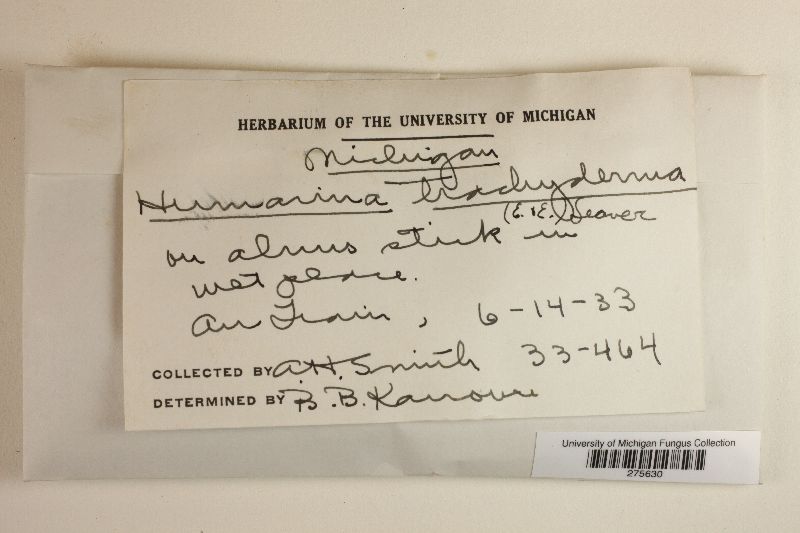 HERBARIUM OF THE UNIVERSITY OF MICHIGAN
Michigan
Humarina trachyderma
(E. & E.) Seaver
on alnus stick in
wet place.
Au Train, 6-14-33
COLLECTED BY A.H. Smith 33-464
DETERMINED BY B.B. Kanouse
University of Michigan Fungus Collection
275630